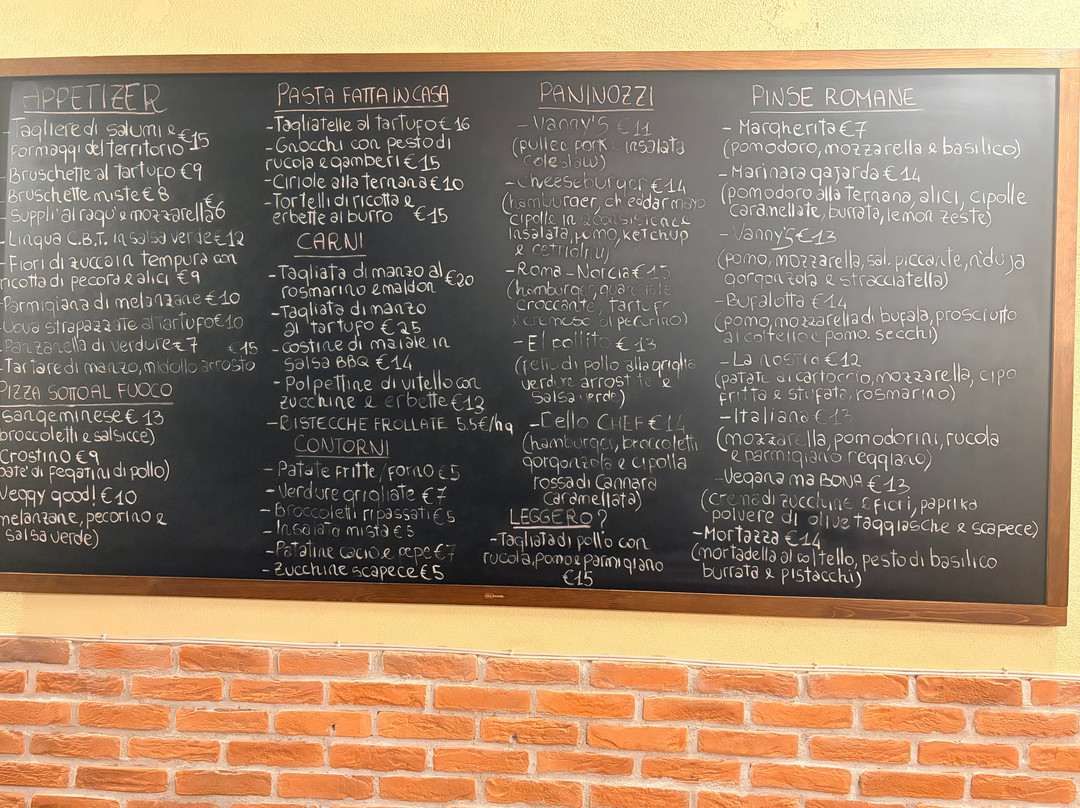 APPETIZER
-Tagliere di salumi e
Formaggi del territorio €15
-Bruschette al tartufo €9
-Bruschette miste €8
suppli' al ragù e mozzarella €6
-Lingua C.B.T. in salsa verde €12
-Fiori di zucca in tempura con
ricotta di pecora e alici €9
-Parmigiana di melanzane €10
-Uova strapazzate al tartufo €10
-Panzanella di verdure €7
-Tartare di manzo, midollo arrosto €15
PIZZA SOTTO AL FUOCO
sangeminese €13
broccoletti e salsicce)
Crostino €9
pate' di fegatini di pollo)
Veggy good! €10
melanzane, pecorino e
salsa verde)
PASTA FATTA IN CASA
-Tagliatelle al tartufo €16
-Gnocchi con pesto di
rucola e gamberi €15
-Ciriole alla ternana €10
-Tortelli di ricotta e
erbette al burro €15
CARNI
-Tagliata di manzo al €20
rosmarino e maldon
-Tagliata di manzo
al tartufo €25
-costine di maiale in
salsa BBQ €14
-Polpettine di vitello con
zucchine e erbette €13
-BISTECCHE FROLLATE 5.5€/hg
CONTORNI
-Patate fritte/forno €5
-Verdure grigliate €7
-Broccoletti ripassati €5
-Insalata mista €5
-Patatine cacio e pepe €7
-Zucchine scapece €5
PANINOZZI
-Vanny'S €11
(pulled pork insalata
coleslaw)
-Cheeseburger €14
(hamburger, cheddar mayo
cipolle in 2 consistenze
Insalata, pomo, ketchup
e cetrioli)
-Roma-Norcia €15
(hamburger, guanciale
croccante, tartufo
e cremoso al pecorino)
-El pollito €13
(petto di pollo alla griglia
verdure arrostite e
salsa verde)
-Dello CHEF €14
(hamburger, broccoletti
gorgonzola e cipolla
rossa di Cannara
caramellata)
LEGGERO?
-Tagliata di pollo con
rucola, pomo e parmigiano
€15
PINSE ROMANE
-Margherita €7
(pomodoro, mozzarella e basilico)
-Marinara gajarda €14
(pomodoro alla ternana, alici, cipolle
caramellate, burrata, lemon zeste)
-Vanny'S €13
(pomo, mozzarella, sal. piccante, nduja
gorgonzola e stracciatella)
-Bufalotta €14
(pomo, mozzarella di bufala, prosciutto
al coltello e pomo. secchi)
-La nostra €12
(patate al cartoccio, mozzarella, cipo
fritta e stufata, rosmarino)
-Italiana €13
(mozzarella, pomodorini, rucola
e parmigiano reggiano)
-Vegana ma BONA €13
(crema di zucchine e fiori, paprika
polvere di olive taggiasche e scapece)
-Mortazza €14
(mortadella al coltello, pesto di basilico
burrata e pistacchi)